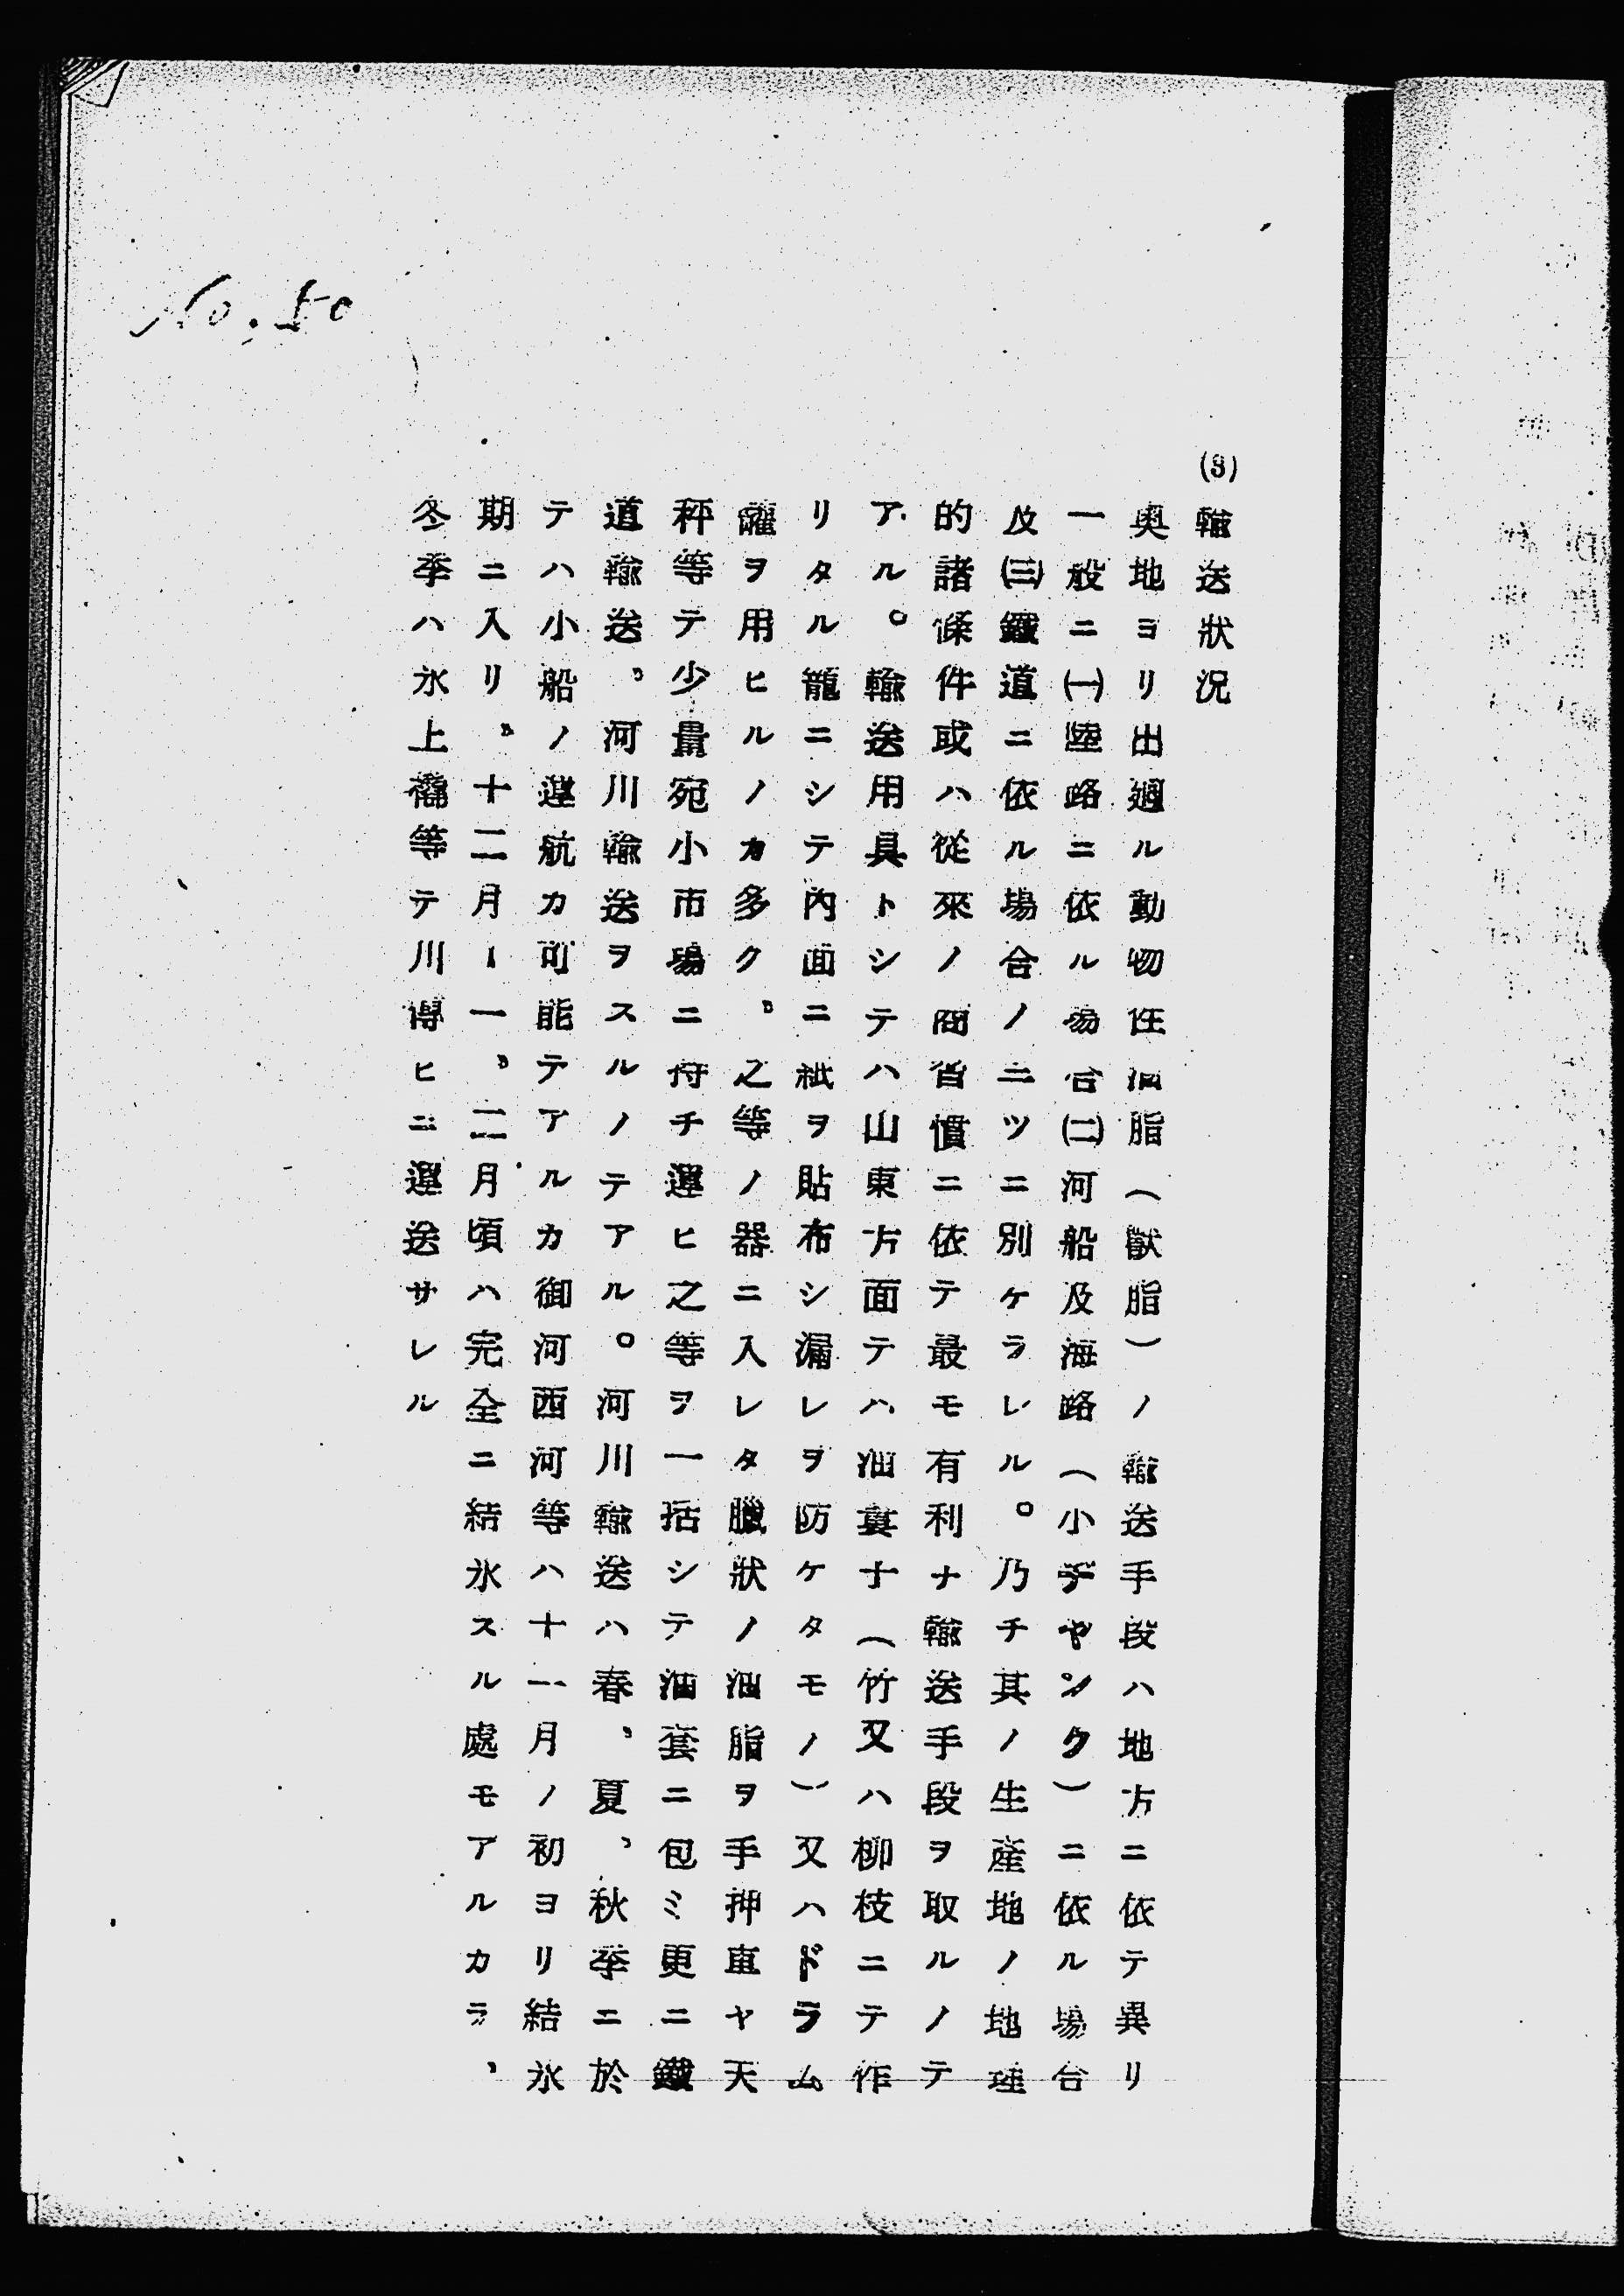 No. 50
(3) 輸送狀況
奧地ヨリ出廻ル動物性油脂(獸脂)ノ輸送手段ハ地方ニ依テ異リ
一般ニ(一)陸路ニ依ル場合(二)河船及海路(小ヂヤンク)ニ依ル場合
及(三)鐵道ニ依ル場合ノ三ツニ別ケラレル。乃チ其ノ生產地ノ地理
的諸條件或ハ從來ノ商習慣ニ依テ最モ有利ナ輸送手段ヲ取ルノテ
アル。輸送用具トシテハ山東方面テハ油簍子(竹又ハ柳枝ニテ作
リタル籠ニシテ內面ニ紙ヲ貼布シ漏レヲ防ケタモノ)又ハドラム
罐ヲ用ヒルノカ多ク、之等ノ器ニ入レタ臘狀ノ油脂ヲ手押車ヤ天
秤等テ少量宛小市場ニ持チ運ヒ之等ヲ一括シテ油套ニ包ミ更ニ鐵
道輸送、河川輸送ヲスルノテアル。河川輸送ハ春、夏、秋季ニ於
テハ小船ノ運航カ可能テアルカ御河西河等ハ十一月ノ初ヨリ結氷
期ニ入リ、十二月ー一、二月頃ハ完全ニ結氷スル處モアルカラ、
冬季ハ氷上橇等テ川傳ヒニ運送サレル